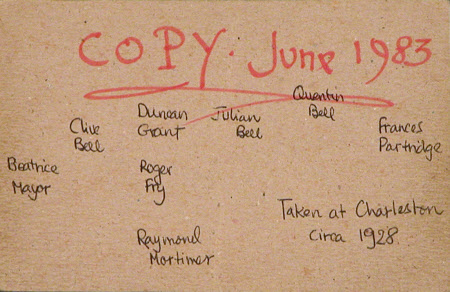 COPY. June 1983
Quentin
Bell
Duncan
Grant
Julian
Bell
Clive
Bell
Frances
Partridge
Beatrice
Mayor
Roger
Fry
Taken at Charleston
Circa 1928
Raymond
Mortimer